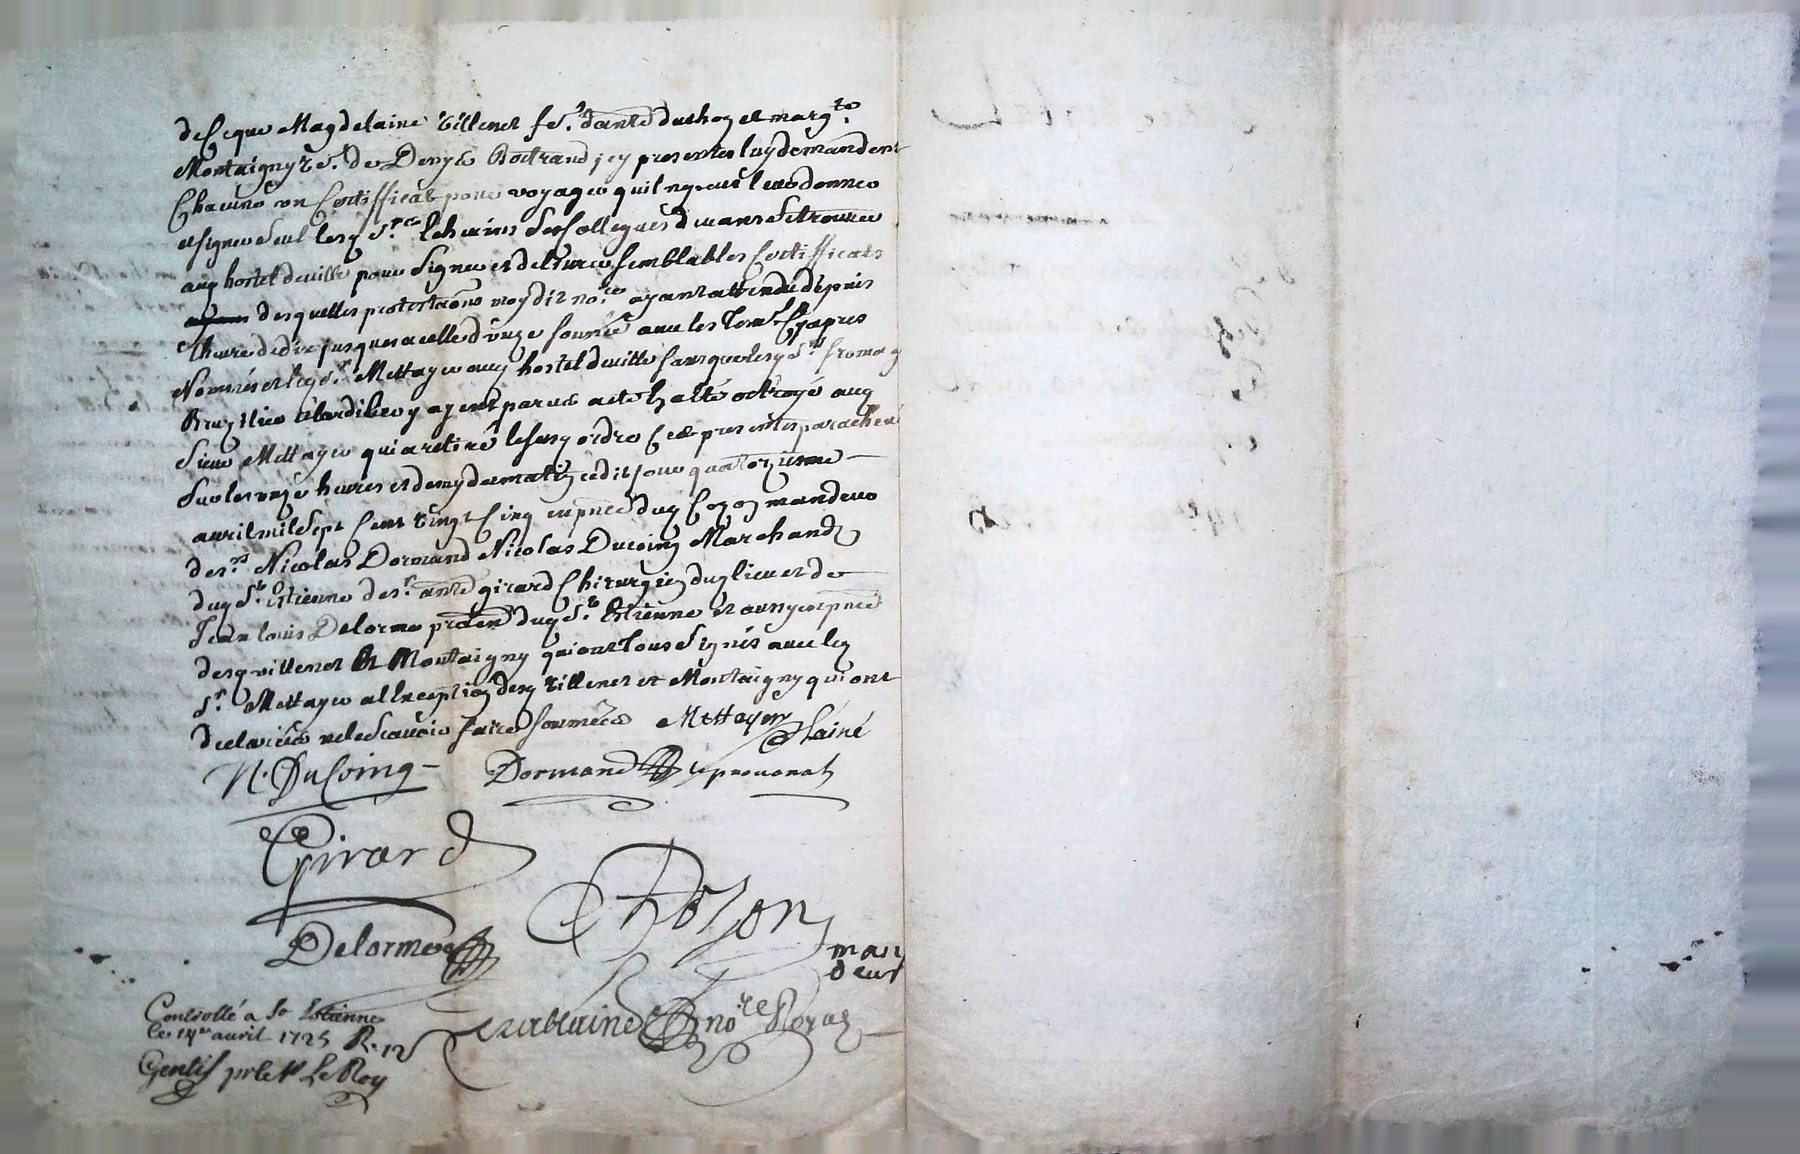 de ce que Magdelaine Villenet fe. d'antd duchon et marg.te
Montaigny ve. de Denys Bertrand jcy presentes luy demandent
Chacune un Certifficat pour voyager qu'il ne peut leur donner
et signer seul les Srs Eschevins ses Collegues devans se trouver
aud hostel de ville pour signer et delivrer semblables Certifficats
desquelles protestaons moy dit nore ayant attendu depuis
l'heure de dix jusques a celle d'onze sonnée avec les tems cy apres
Nommés et led Sr. Mettayer aud hostel de ville sans que lesd Srs fromag
y ayent parus acte ha esté octroyé aud
Sieur Mettayer qui a retiré led ordre Ces presentes paracheué
sur les onze heures et demy du matin cedit jour quatorzieme
avril mil sept Cent vingt Cinq en pnce dud Cozon mandeur
de srs Nicolas Dormand Nicolas Ducoing Marchands
dud St. Estienne de sr. antd girard Chirurgien dud lieu et de
Jean louis Delorme praticien dud St. Estienne et aussy en pnce
desd villenet Et Montaigny qui ont tous signés avec led
Sr. Mettayer a l'Exception desd Villenet et Montaigny qui ont
declarées ne le scavoir faire sommées Mettayer Lainé
N. DuCoing Dormand
Girard
Cozon
man
deur
Delorme
nore Royal
Controllé a St Estienne
le 14me avril 1725 R. 12s
Gentil pr le Sr Le Roy